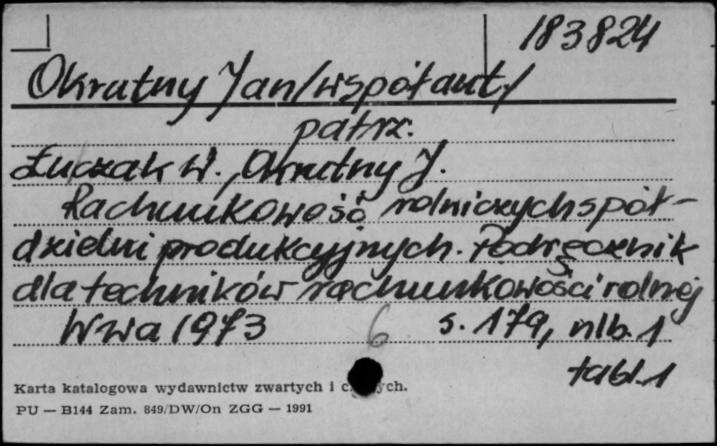 183824
Okrutny Jan/współaut/
patrz.
Łuczak W., Okrutny J.
Rachunkowość rolniczych spół-
dzielni produkcyjnych. Podręcznik
dla techników rachunkowości rolnej
Wwa 1973 6 s. 179, nlb. 1
tabl. 1
Karta katalogowa wydawnictw zwartych i
PU — B144 Zam. 849/DW/On ZGG — 1991